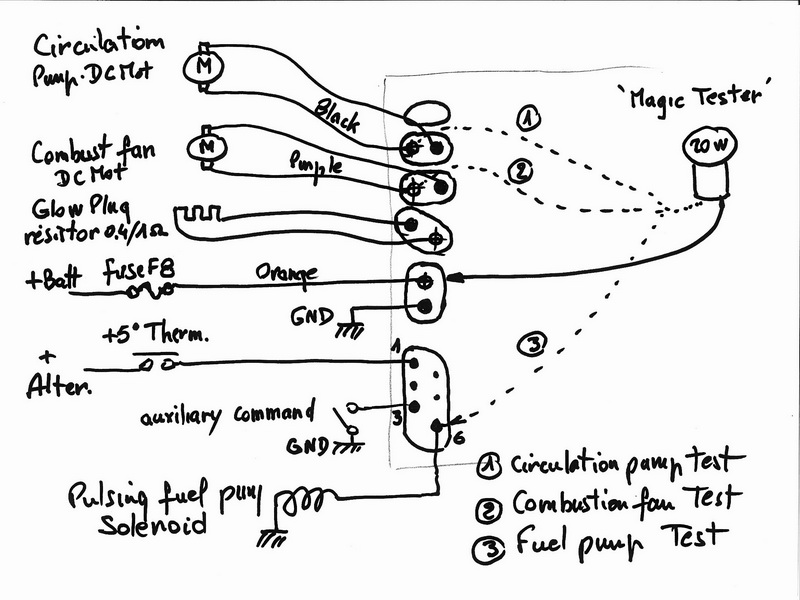 Circulation
Pump. DC Mot
M
Black
'Magic Tester'
1
20W
Combust fan
DC Mot
M
Purple
2
Glow Plug
resistor 0.4/1Ω
+Batt
fuse F8
Orange
GND
+5° Therm.
+
Alter.
1
3
auxiliary command
3
GND
6
Pulsing fuel pump
Solenoid
1 Circulation pump test
2 Combustion fan Test
3 Fuel pump Test